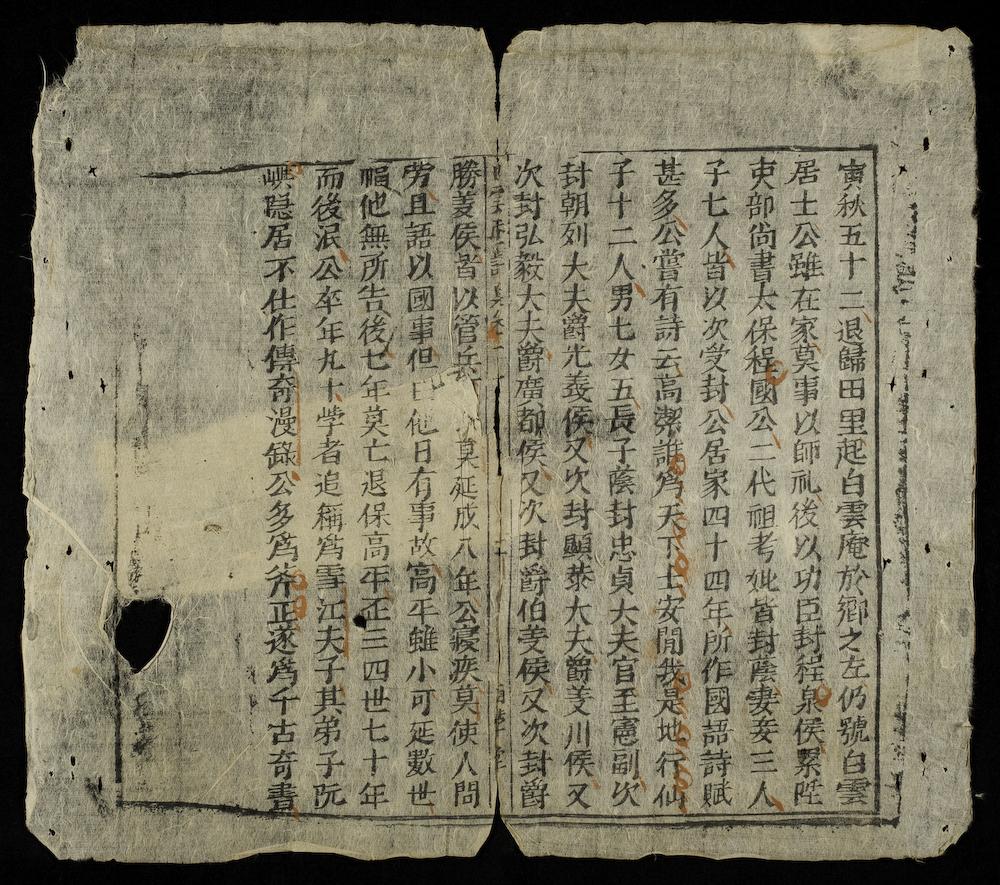 寅秋五十二退歸田里起白雲庵於鄉之左仍號白雲
居士公雖在家莫事以師礼後以功臣封程泉侯累陞
吏部尚書太保程國公二代祖考妣皆封蔭妻妾三人
子七人皆以次受封公居家四十四年所作國語詩賦
甚多公嘗有詩云高潔誰爲天下士安閒我是地行仙
子十二人男七女五長子蔭封忠貞大夫官至憲副次
封朝列大夫爵光義侯又次封顯恭大夫爵姜川侯又
次封弘毅大夫爵廣都侯又次封爵伯姜侯又次封爵
勝姜侯皆以管兵 莫延成八年公寢疾莫使人問
勞且語以國事但曰他日有事故高平雖小可延數世
福他無所告後七年莫亡退保高平歪三四世七十年
而後泯公卒年九十學者追稱爲雪江夫子其弟子阮
嶼隱居不仕作傳奇漫錄公多爲斧正遂爲千古奇書